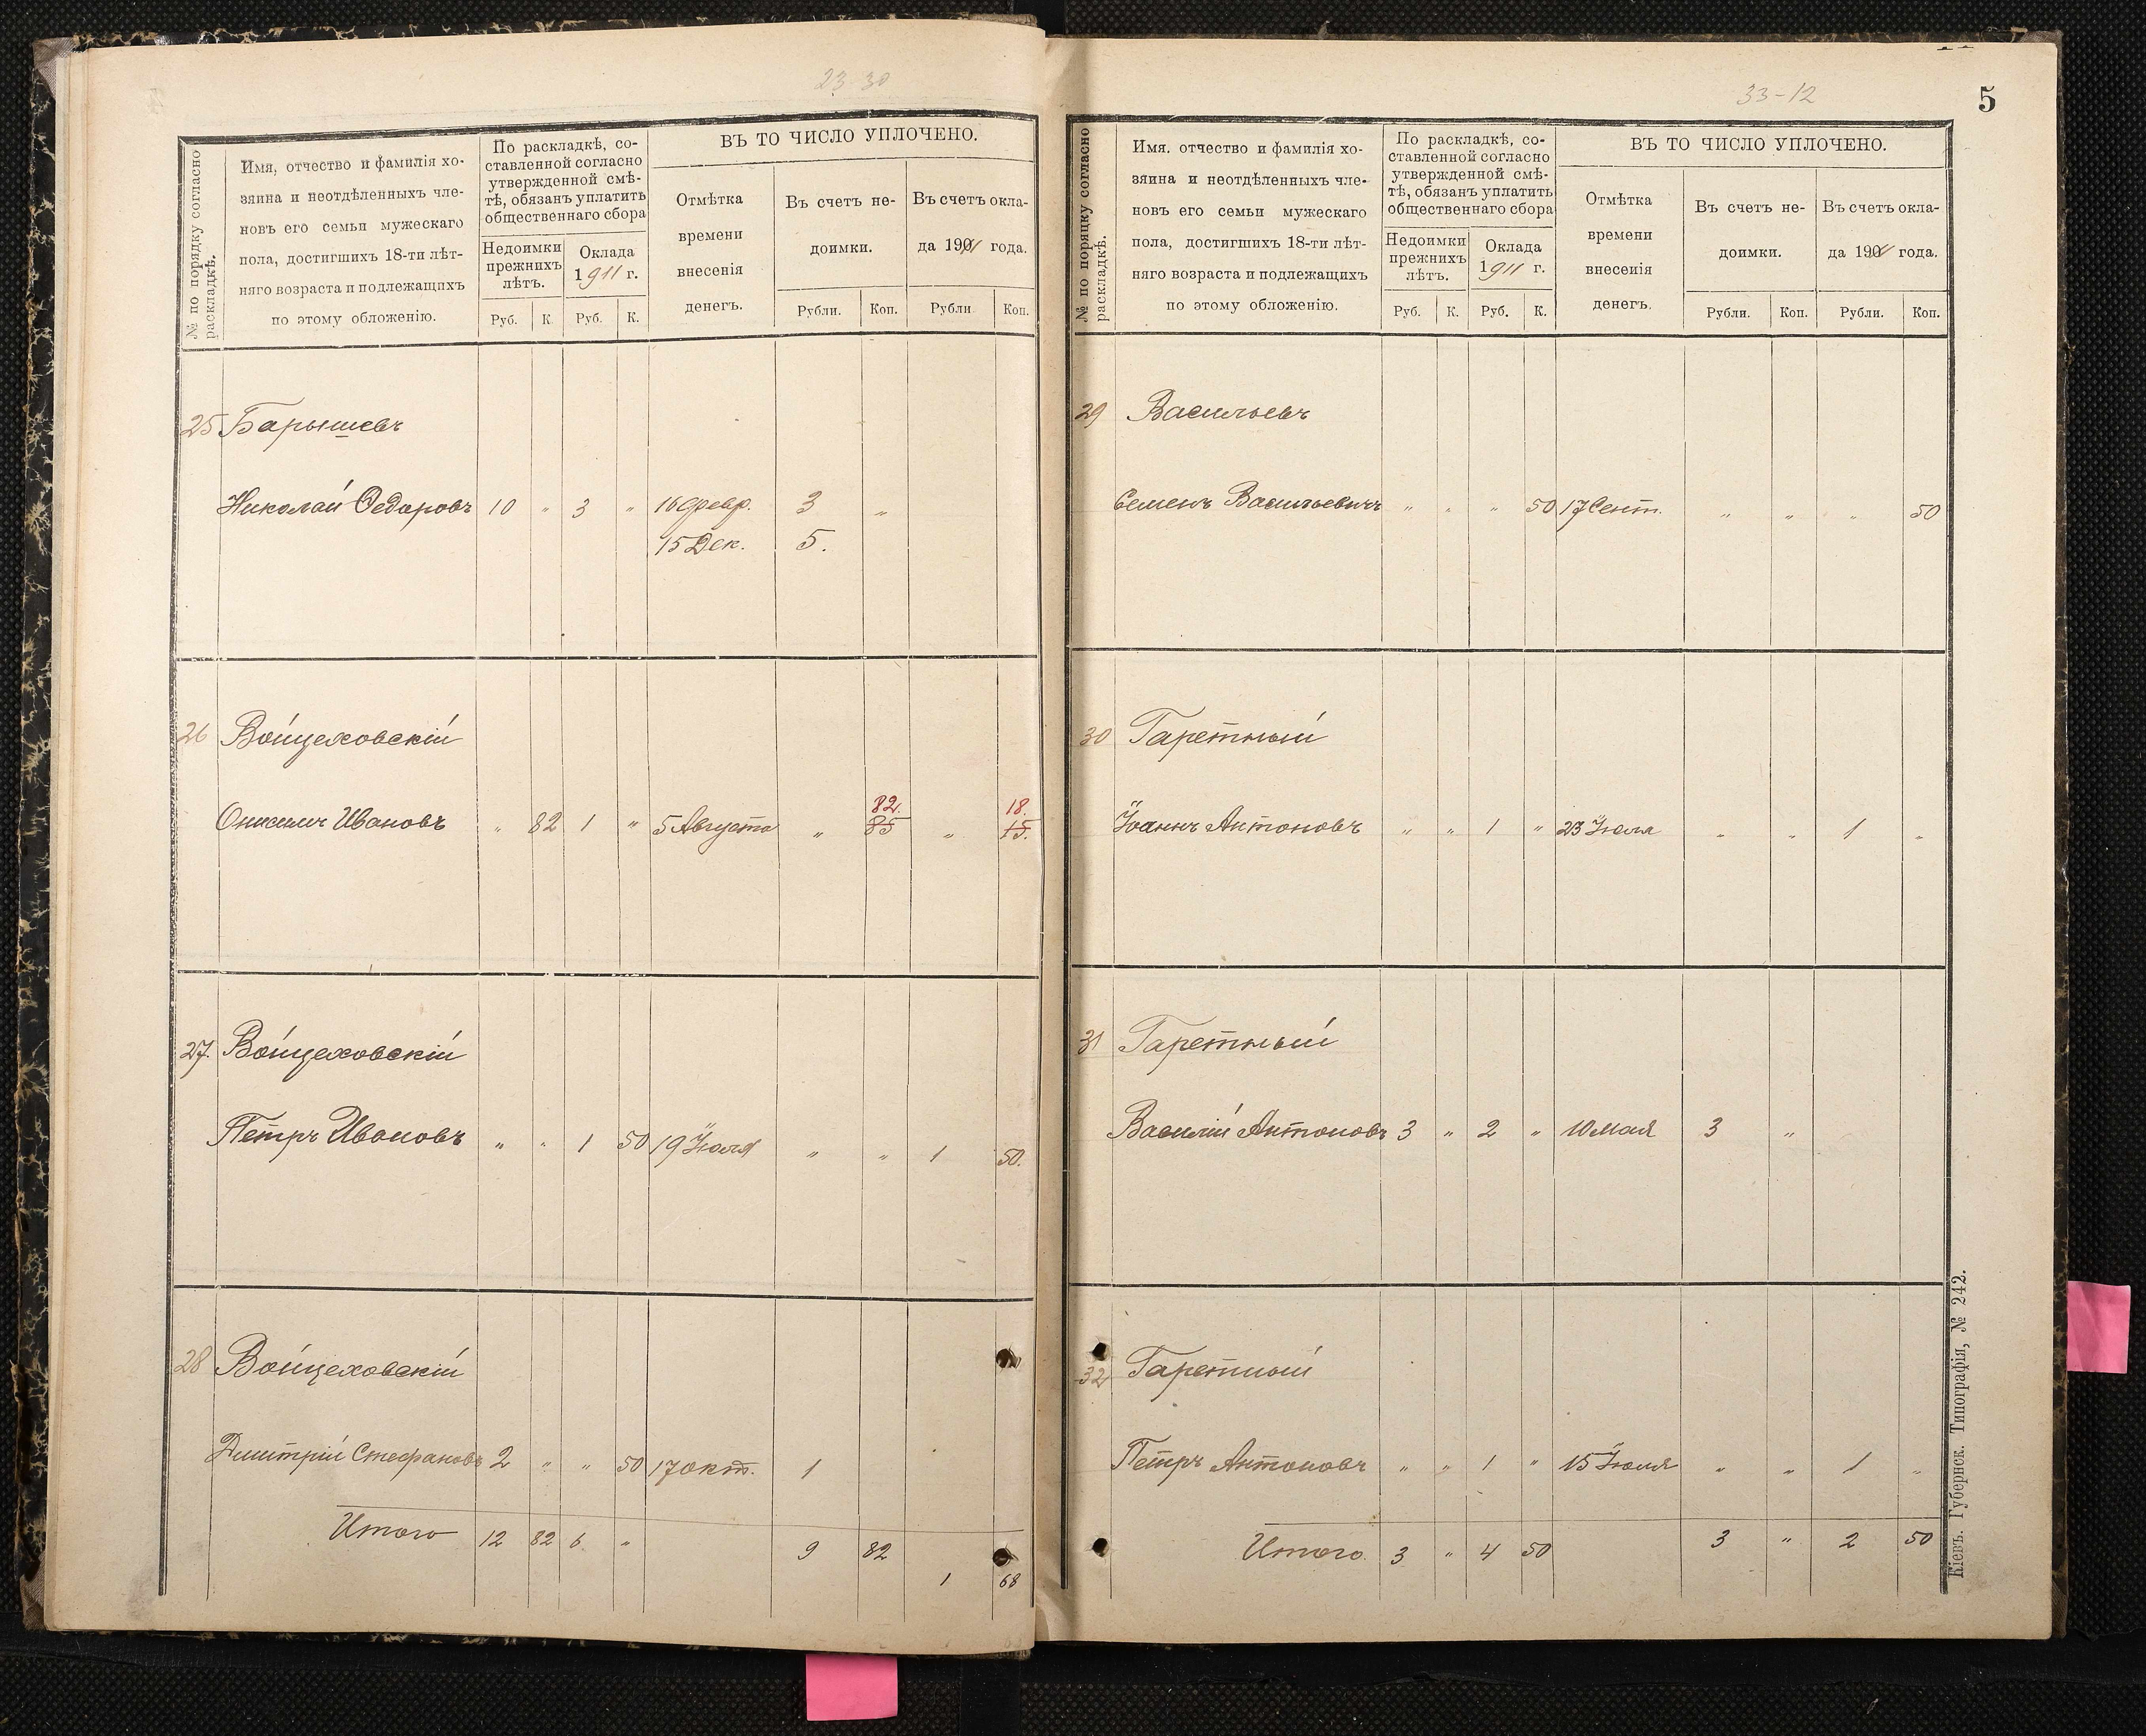 23-30
№ по порядку согласно раскладкѣ.
Имя, отчество и фамилія хо-
зяина и неотдѣленныхъ чле-
новъ его семьи мужескаго
пола, достигшихъ 18-ти лѣт-
няго возраста и подлежащихъ
по этому обложенію.
По раскладкѣ, со-
ставленной согласно
утвержденной смѣ-
тѣ, обязанъ уплатить
общественнаго сбора
Недоимки
прежнихъ
лѣтъ.
Оклада
1911 г.
Руб. К. Руб. К.
ВЪ ТО ЧИСЛО УПЛОЧЕНО.
Отмѣтка
времени
внесенія
денегъ.
Въ счетъ не-
доимки.
Въ счетъ окла-
да 1911 года.
Рубли. Коп. Рубли Коп.
25 Барышевъ
Николай Ѳедоровъ 10 " 3 " 16 февр. 3 "
15 Дек. 5.
26 Войцеховскій
82. 18.
Онисимъ Ивановъ " 82 1 " 5 Августа " 85 " 15.
27. Войцеховскій
Петръ Ивановъ " " 1 50 19 Іюля " " 1 50.
28 Войцеховскій
Дмитрій Стефановъ 2 " " 50 17 окт. 1
Итого 12 82 6 " 9 82
1 68
33-12
5
№ по порядку согласно раскладкѣ.
Имя, отчество и фамилія хо-
зяина и неотдѣленныхъ чле-
новъ его семьи мужескаго
пола, достигшихъ 18-ти лѣт-
няго возраста и подлежащихъ
по этому обложенію.
По раскладкѣ, со-
ставленной согласно
утвержденной смѣ-
тѣ, обязанъ уплатить
общественнаго сбора
Недоимки
прежнихъ
лѣтъ.
Оклада
1911 г.
Руб. К. Руб. К.
ВЪ ТО ЧИСЛО УПЛОЧЕНО.
Отмѣтка
времени
внесенія
денегъ.
Въ счетъ не-
доимки.
Въ счетъ окла-
да 1911 года.
Рубли. Коп. Рубли. Коп.
29 Васильевъ
Семенъ Васильевичъ " " " 50 17 Сент. " " " 50
30 Гаретный
Іоаннъ Антоновъ " " 1 " 23 Іюля " " 1 "
31 Гаретный
Василій Антоновъ 3 " 2 " 10 Мая 3 "
32 Гаретный
Петръ Антоновъ " " 1 " 15 Іюля " " 1 "
Итого. 3 " 4 50 3 " 2 50
Кіевъ. Губернск. Типографія, № 242.